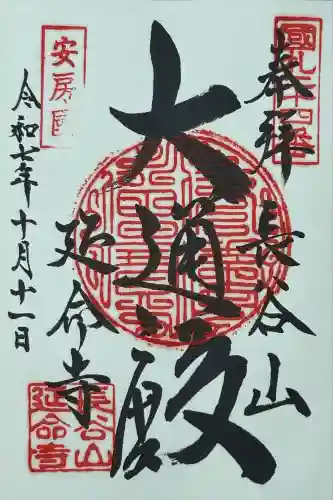 奉拝
長谷山
大通殿
延命寺
令和七年十月十一日
安房国
長谷山
延命寺